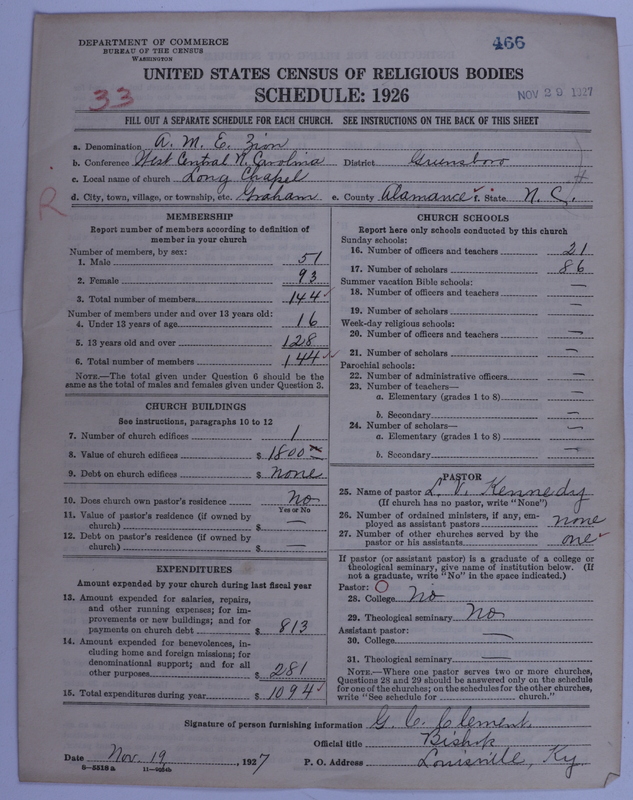 DEPARTMENT OF COMMERCE
BUREAU OF THE CENSUS
WASHINGTON
466
UNITED STATES CENSUS OF RELIGIOUS BODIES
33
SCHEDULE: 1926
NOV 29 1927
FILL OUT A SEPARATE SCHEDULE FOR EACH CHURCH. SEE INSTRUCTIONS ON THE BACK OF THIS SHEET
a. Denomination A. M. E. Zion
b. Conference West Central N. Carolina District Greensboro
c. Local name of church Long Chapel
d. City, town, village, or township, etc. Graham e. County Alamance f. State N. C.
R
MEMBERSHIP
Report number of members according to definition of
member in your church
Number of members, by sex:
1. Male 51
2. Female 93
3. Total number of members 144
Number of members under and over 13 years old:
4. Under 13 years of age 16
5. 13 years old and over 128
6. Total number of members 144
NOTE.—The total given under Question 6 should be the
same as the total of males and females given under Question 3.
CHURCH BUILDINGS
See instructions, paragraphs 10 to 12
7. Number of church edifices 1
8. Value of church edifices $ 1800
9. Debt on church edifices $ none
10. Does church own pastor's residence No
Yes or No
11. Value of pastor's residence (if owned by
church) $ —
12. Debt on pastor's residence (if owned by
church) $ —
EXPENDITURES
Amount expended by your church during last fiscal year
13. Amount expended for salaries, repairs,
and other running expenses; for im-
provements or new buildings; and for
payments on church debt $ 813
14. Amount expended for benevolences, in-
cluding home and foreign missions; for
denominational support; and for all
other purposes $ 281
15. Total expenditures during year $ 1094
CHURCH SCHOOLS
Report here only schools conducted by this church
Sunday schools:
16. Number of officers and teachers 21
17. Number of scholars 86
Summer vacation Bible schools:
18. Number of officers and teachers —
19. Number of scholars —
Week-day religious schools:
20. Number of officers and teachers —
21. Number of scholars —
Parochial schools:
22. Number of administrative officers —
23. Number of teachers—
a. Elementary (grades 1 to 8) —
b. Secondary —
24. Number of scholars—
a. Elementary (grades 1 to 8) —
b. Secondary —
PASTOR
25. Name of pastor L. V. Kennedy
(If church has no pastor, write "None")
26. Number of ordained ministers, if any, em-
ployed as assistant pastors none
27. Number of other churches served by the
pastor or his assistants one
If pastor (or assistant pastor) is a graduate of a college or
theological seminary, give name of institution below. (If
not a graduate, write "No" in the space indicated.)
Pastor:
28. College No
29. Theological seminary No
Assistant pastor:
30. College —
31. Theological seminary —
NOTE.—Where one pastor serves two or more churches,
Questions 28 and 29 should be answered only on the schedule
for one of the churches; on the schedules for the other churches,
write "See schedule for church."
Signature of person furnishing information G. C. Clement
Official title Bishop
Date Nov. 19, 1927 P. O. Address Louisville, Ky.